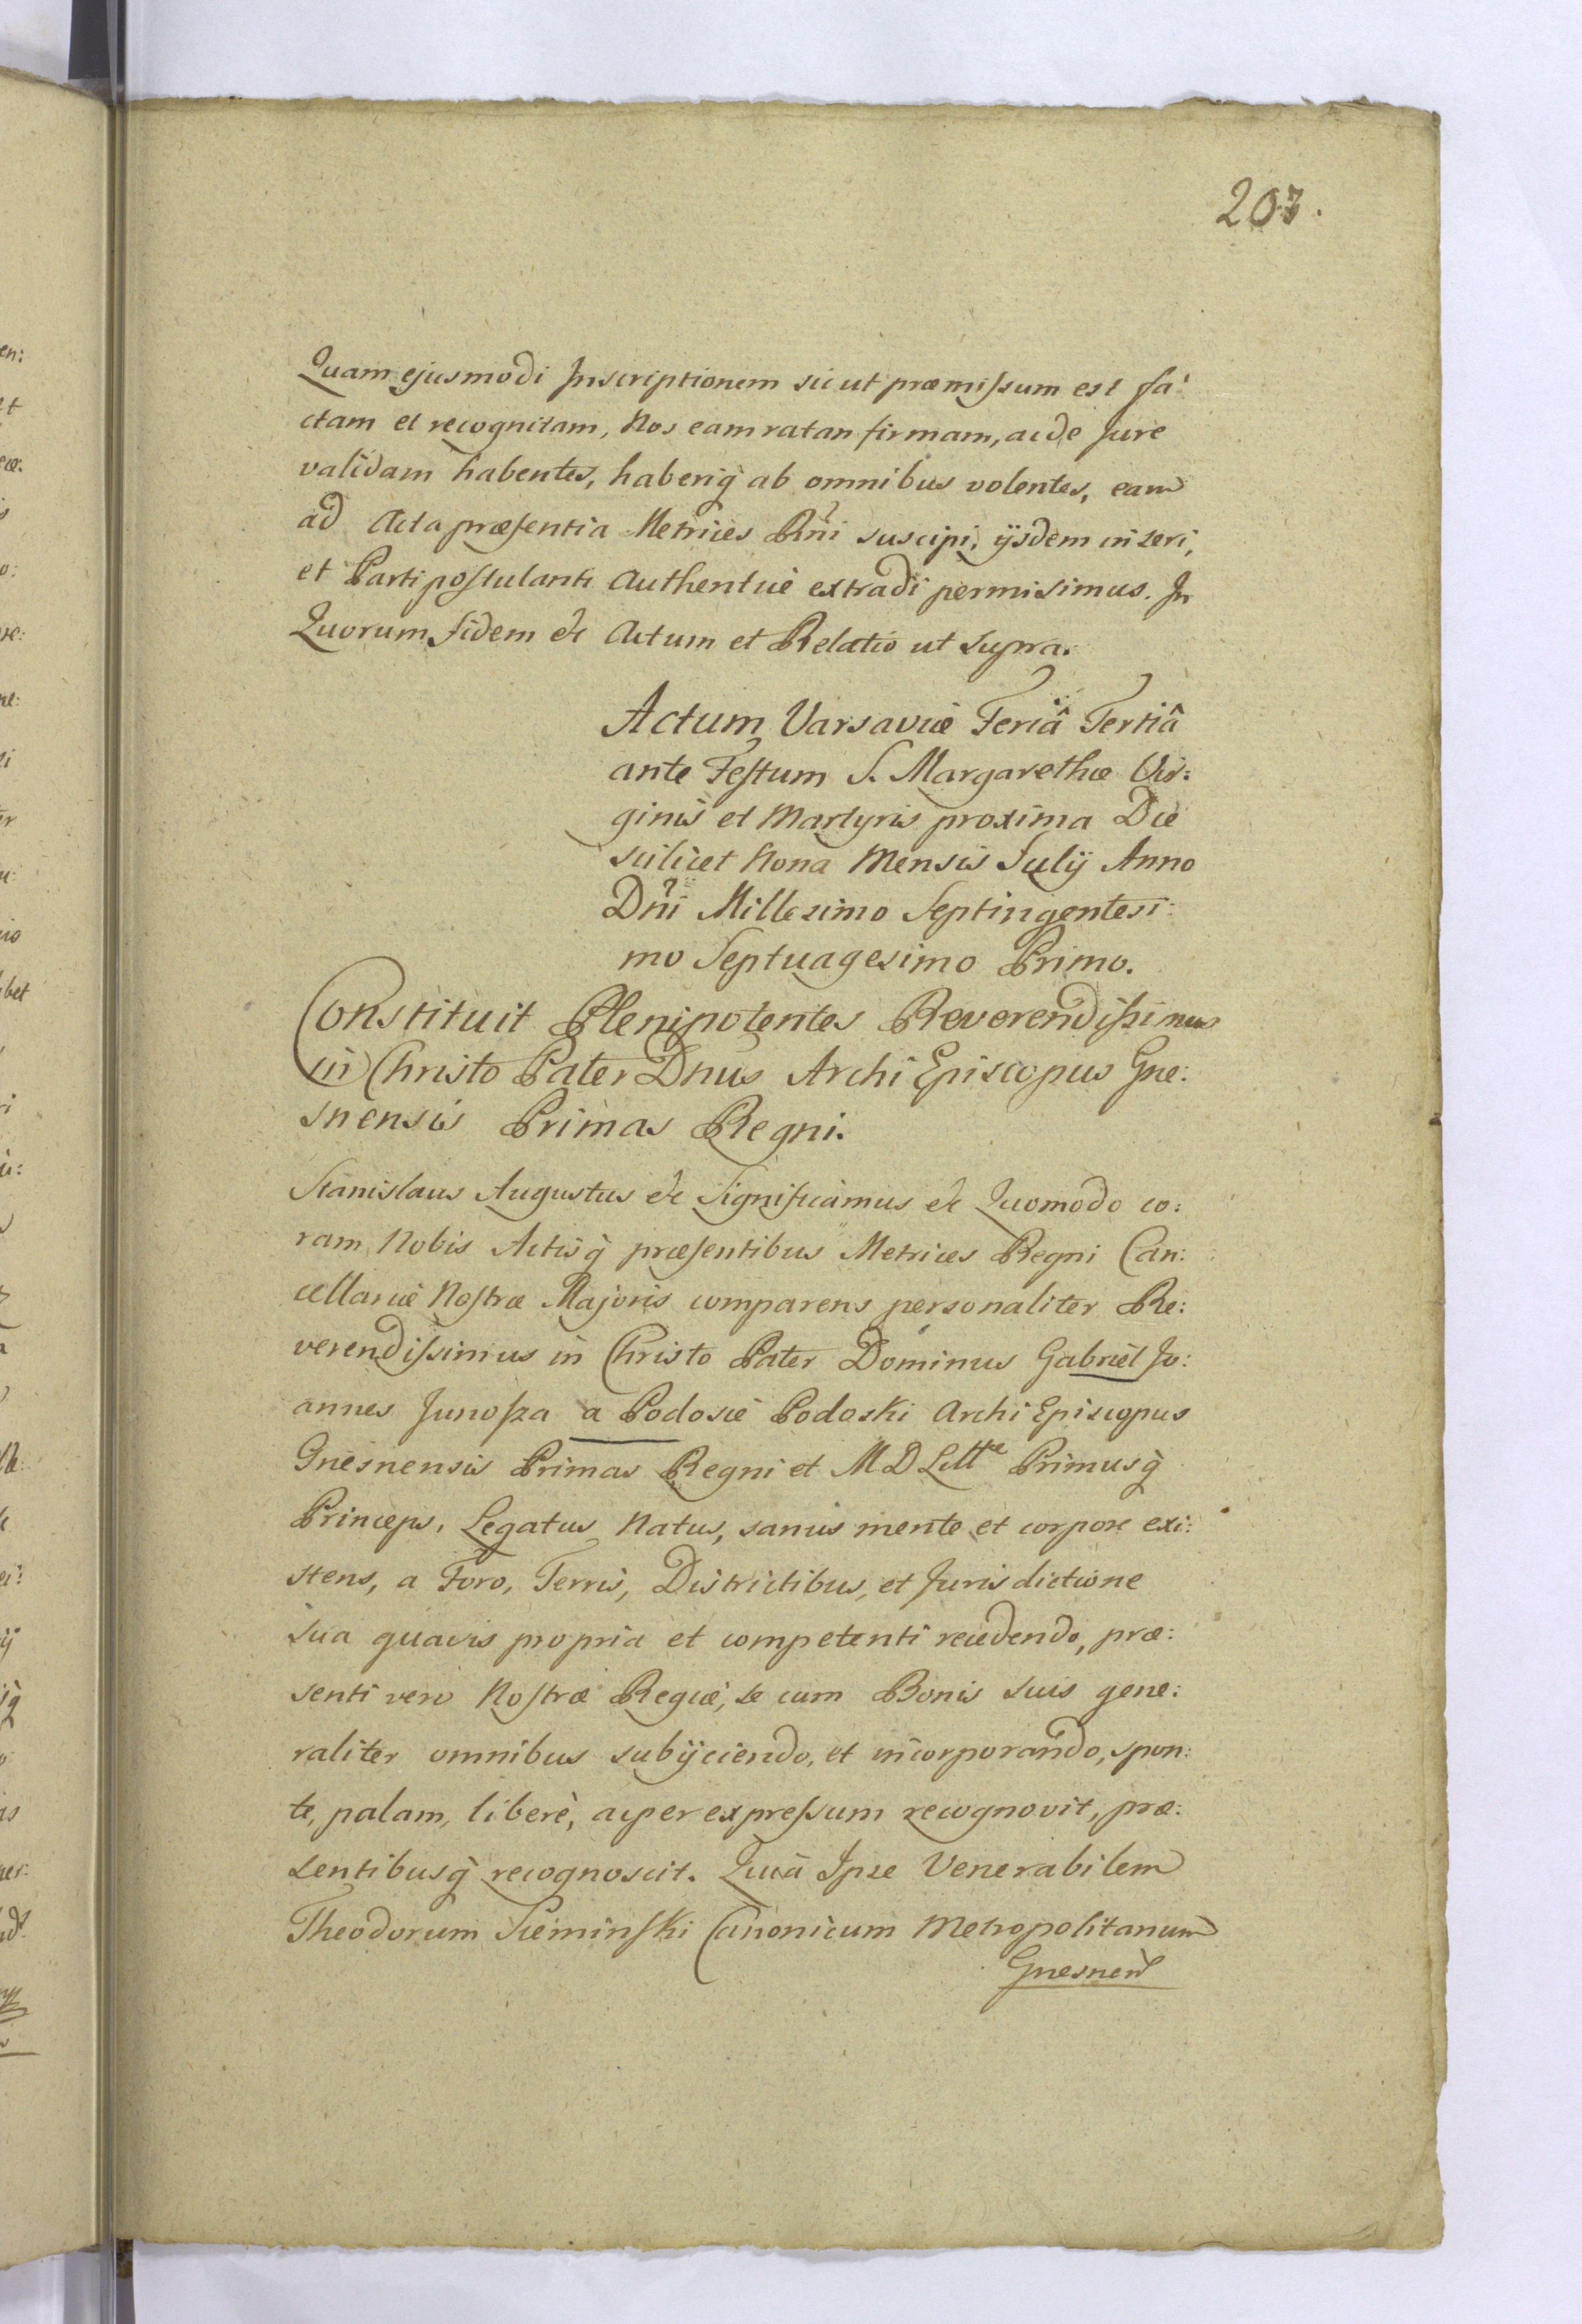 203.
Quam ejusmodi Inscriptionem sicut præmissum est fa:
ctam et recognitam, Nos eam ratan firmam, ac de Jure
validam habentes, haberiq̀ ab omnibus volentes, eam
ad Acta præsentia Metrices Rñi suscipi, ijsdem inseri,
et Parti postulanti Authenticè extradi permisimus. In
Quorum fidem &c Actum et Relatio ut supra.
Actum Varsaviæ Feriâ Tertiâ
ante Festum S. Margarethæ Vir:
ginis et Martyris proxima Die
scilicet Nona Mensis Julij Anno
Dñi Millesimo Septingentesi:
mo Septuagesimo Primo.
Constituit Plenipotentes Reverendissimus
in Christo Pater Dnus Archi Episcopus Gne:
snensis Primas Regni.
Stanislaus Augustus &c Significamus &c Quomodo co:
ram Nobis Actisq̀ præsentibus Metrices Regni Can:
cellariæ Nostræ Majoris comparens personaliter Re:
verendissimus in Christo Pater Dominus Gabriel Jo:
annes Junosza a Podosie Podoski Archi Episcopus
Gnesnensis Primas Regni et M D Litt^æ Primusq̀
Princeps, Legatus Natus, sanus mente et corpore exi:
stens, a Foro, Terris, Districtibus, et Jurisdictione
sua quavis propria et competenti recedendo, præ:
senti vero Nostræ Regiæ, se cum Bonis suis gene:
raliter omnibus subijciendo, et incorporando, spon:
te, palam, liberè, ac per expressum recognovit, præ:
sentibusq̀ recognoscit. Quia Ipse Venerabilem
Theodorum Sieminski Canonicum Metropolitanum
Gnesnen̄